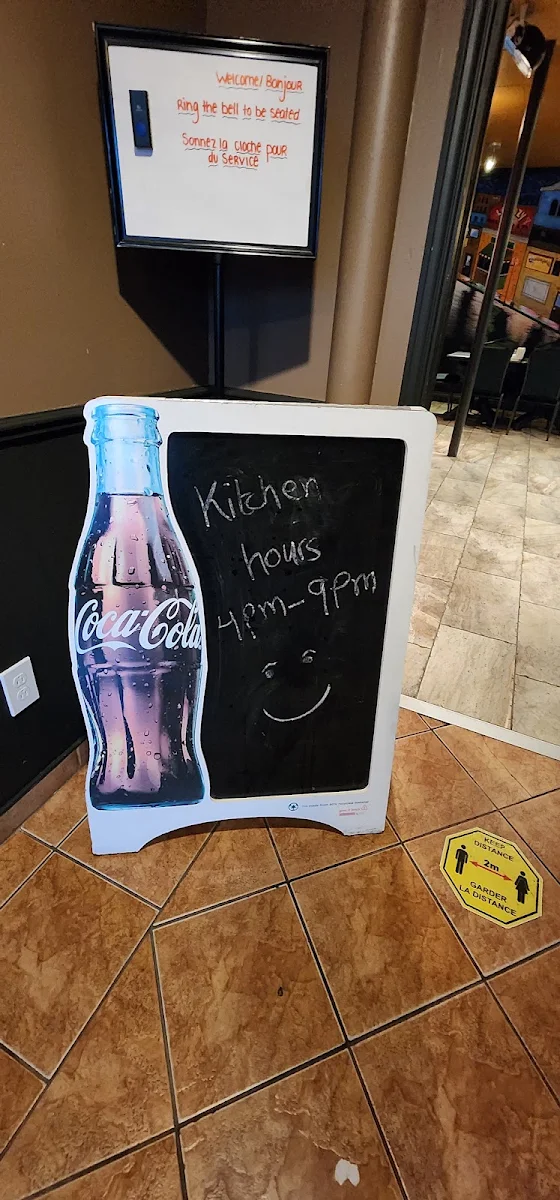 Welcome/Bonjour
Ring the bell to be seated
Sonnez la cloche pour
du Service
Kitchen
hours
4pm-9pm
Coca-Cola
KEEP
DISTANCE
2m
GARDER
LA DISTANCE